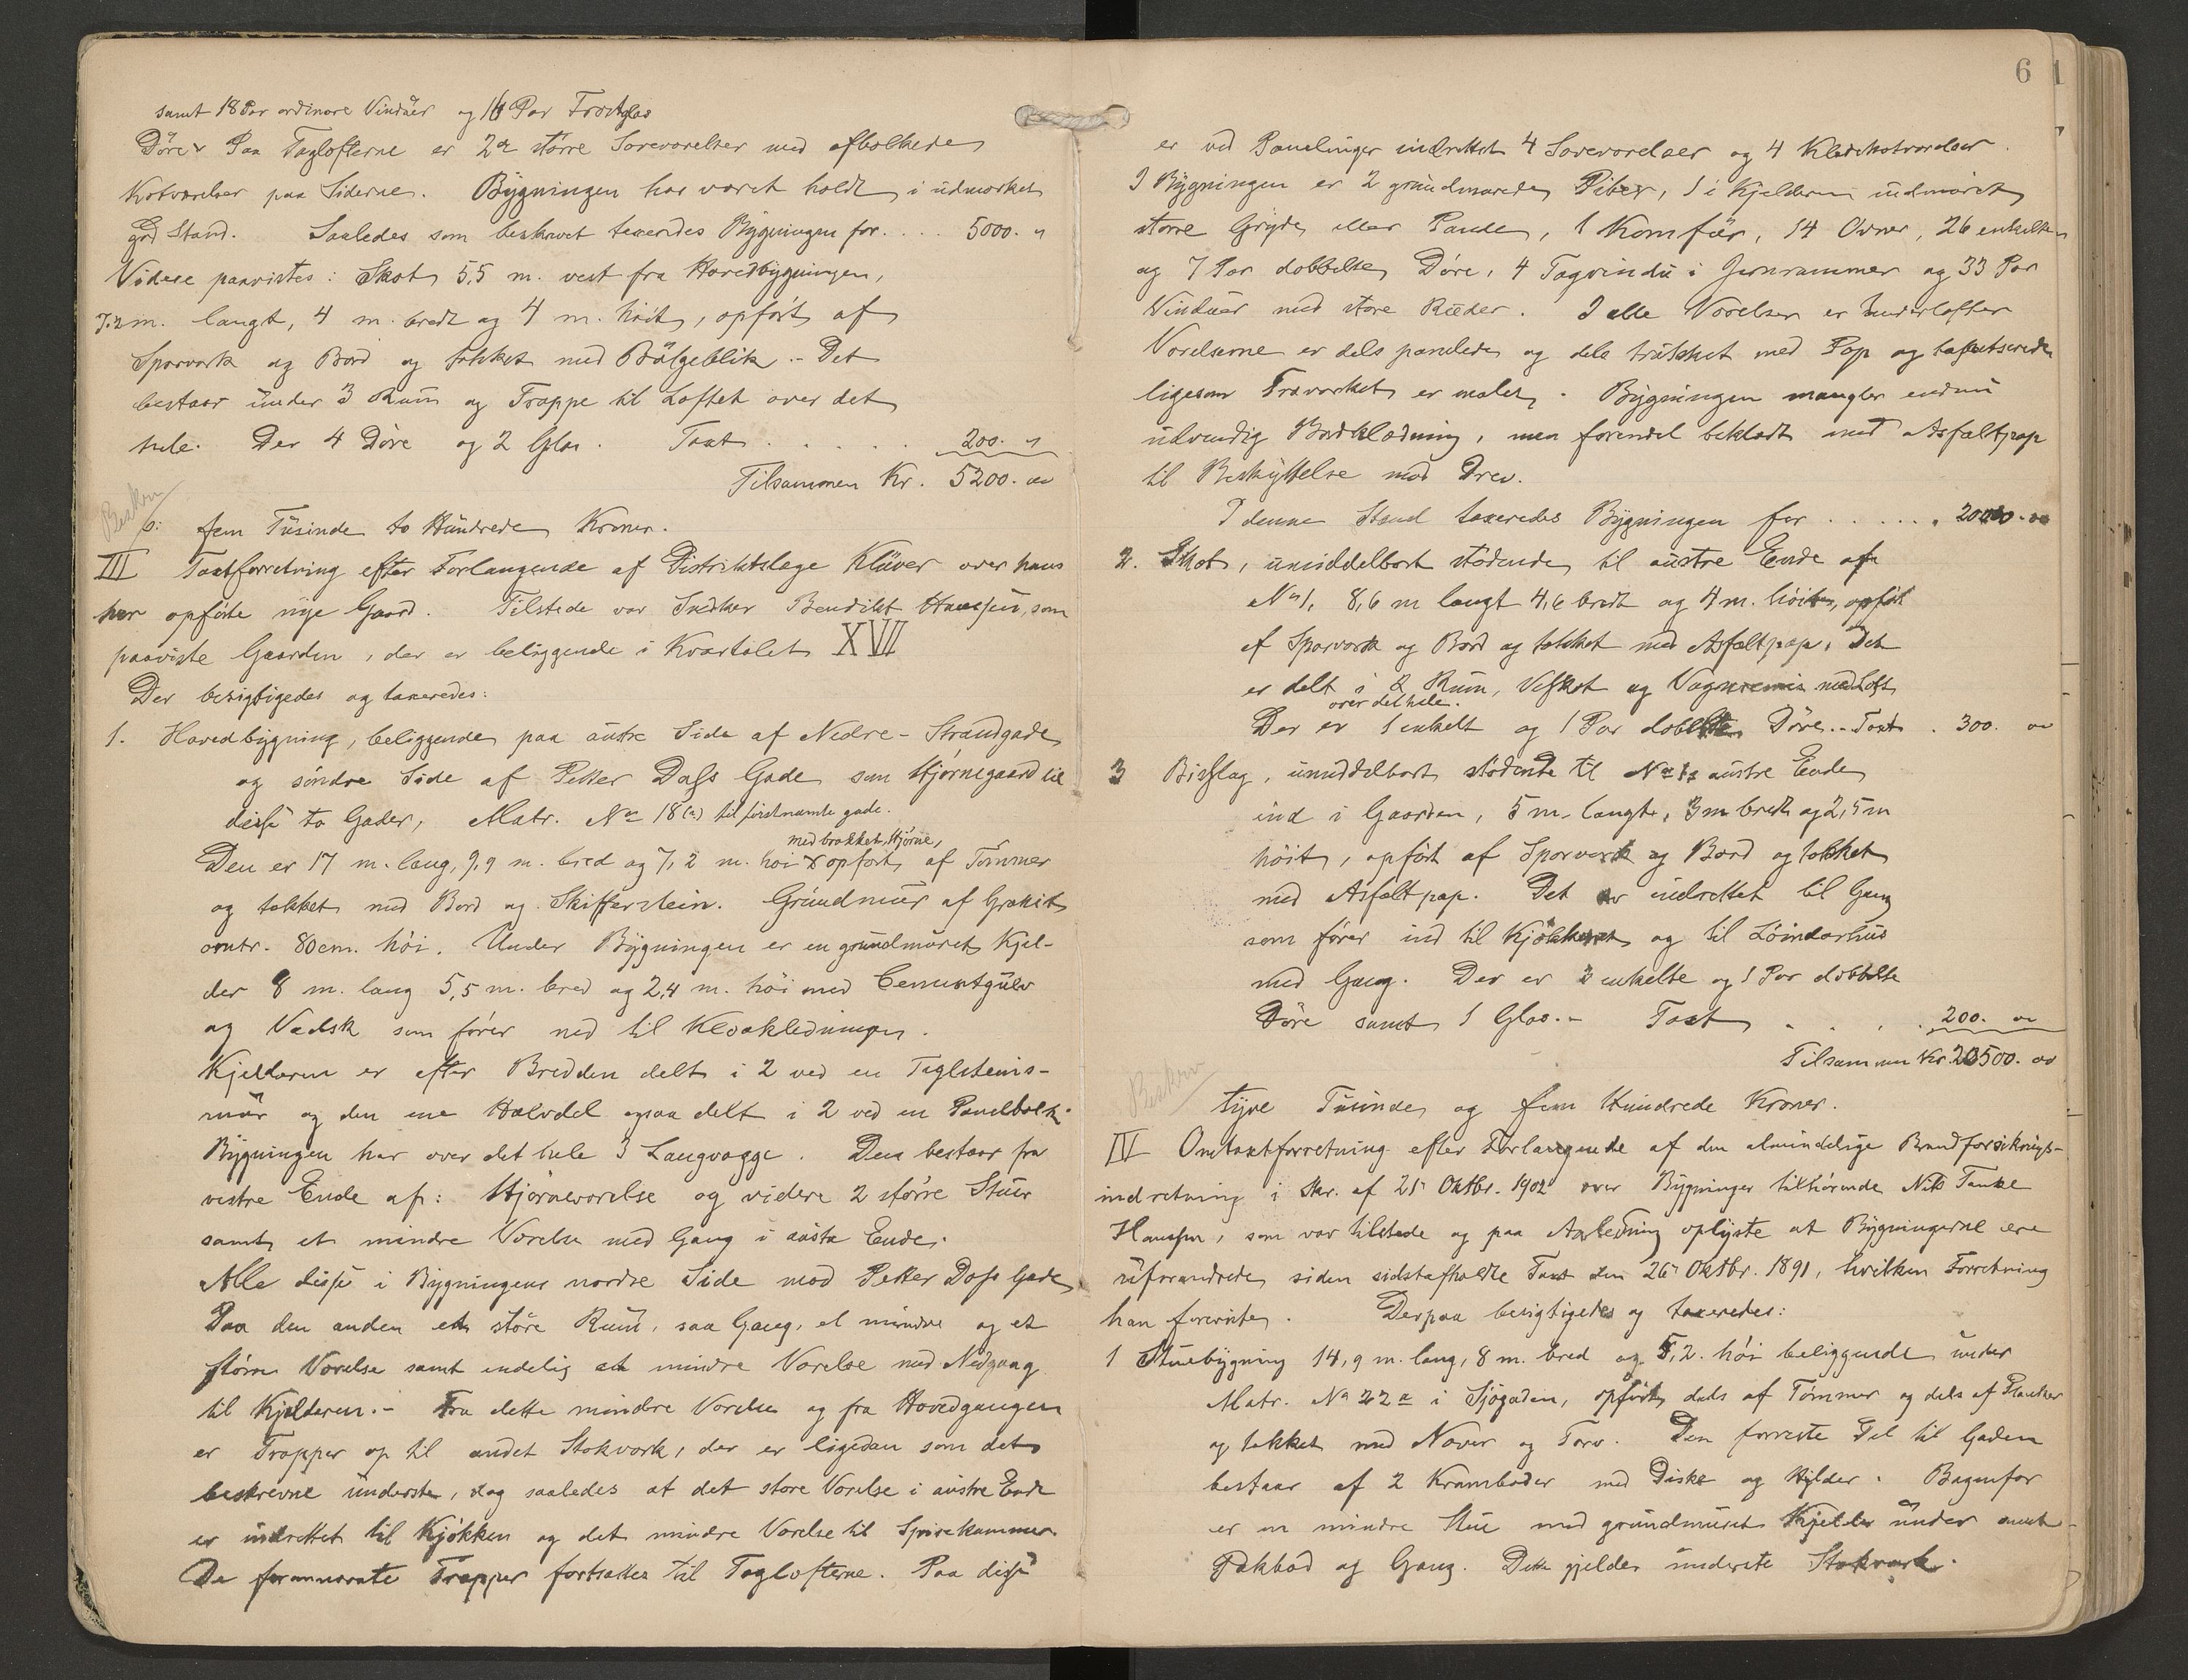 samt 18 Par ordinære Vinduer og 16 Par Trætglas
Döre. Paa Taglofterne er 2de större Soveværelser med afbolkede
Kotværelser paa Siderne. Bygningen har været holdt i udmærket
god Stand. Saaledes som beskrevet taxeredes Bygningen for.... 5000. "
Videre paavistes: Skot 5,5 m. vest fra Hovedbygningen,
7,2 m. langt, 4 m. bredt og 4 m. höit, opfört af
Sparværk og Bord og tækket med Bölgeblik.- Det
bestaar under 3 Rum og Trappe til Loftet over det
hele. Der 4 Döre og 2 Glas. Taxt . . . . . 200. "
Tilsammen Kr. 5200. 00
Beskrn
s: fem Tusinde to Hundrede Kroner.
III Taxtforretning efter Forlangende af Distriktslæge Klüver over hans
her opförte nye Gaard. Tilstede var Snedker Bendikt Hanssen, som
paaviste Gaarden, der er beliggende i Kvartalet XVII
Der besigtigedes og taxeredes:
1. Hovedbygning, beliggende paa östre Side af Nedre-Strandgade
og söndre Side af Petter Dass Gade som Hjörnegaard til
disse to Gader, Matr. No 18(a) til förstnævnte gade.
med brækket Hjörne,
Den er 17 m. lang, 9,9 m. bred og 7,2 m. höi & opfört af Tömmer
og tækket med Bord og Skifferstein. Grundmur af Grakit
omtr. 80 cm. höi. Under Bygningen er en grundmuret Kjel-
der 8 m. lang 5,5 m. bred og 2,4 m. höi med Cementgulv
og Vadsk som förer ned til Kloakledningen.
Kjelderen er efter Bredden delt i 2 ved en Taglsteins-
mur og den ene Halvdel ogsaa delt i 2 ved en Panelbolk.
Bygningen har over det hele 3 Langvægge. Den bestaar fra
vestre Ende af: Hjörneværelse og videre 2 större Stuer
samt et mindre Værelse med Gang i östre Ende.
Alle disse i Bygningens nordre Side mod Petter Dass Gade
Paa den anden et störe Rum, saa Gang, et mindre og et
större Værelse samt endelig et mindre Værelse med Nedgang
til Kjelderen.- Fra dette mindre Værelse og fra Hovedgangen
er Trapper op til andet Stokværk, der er ligedan som det
beskrevne underste, dog saaledes at det store Værelse i östre Ende
er indrettet til Kjökken og det mindre Værelse til Spisekammer.
De forannævnte Trapper fortsættes til Taglofterne. Paa disse
6
er ved Panelinger indrettet 4 Soveværelser og 4 Kledekotværelser.
I Bygningen er 2 grundmurede Piber, 1 i Kjelderen indmuret
större Gryde eller Pande, 1 Komfür, 14 Ovner, 26 enkelte
og 7 Par dobbelte Döre, 4 Tagvindu i Jernrammer og 33 Par
Vinduer med store Ruder. I alle Værelser er Underlofter
Værelserne er dels panelede og dels trukket med Pap og tapetserede
ligesom Træværket er malet. Bygningen mangler endnu
udvendig Bordklædning, men forendel beklædt med Asfaltpap
til Beskyttelse mod Drev.
I denne Stand taxeredes Bygningen for . . . . . 20000.00
2. Skot, umiddelbart stödende til östre Ende af
No 1, 8,6 m langt 4,6 bredt og 4 m. höit, opfört
af Sparværk og Bord og tækket med Asfaltpap. Det
er delt i 2 Rum, Vedskot og Vognremis med Loft
over det hele.
Der er 1 enkelt og 1 Par dobbelte Döre.- Taxt . 300. 00
3 Bislag, umiddelbart stödende til No 1s östre Ende
ind i Gaarden, 5 m. langt, 3 m bredt og 2,5 m
höit, opfört af Sparværk og Bord og tækket
med Asfaltpap. Det er indrettet til Gang
som förer ind til Kjökkenet og til Löindarhus
med Gang. Der er 2 enkelte og 1 Par dobbelte
Döre samt 1 Glas.- Taxt . . . . 200. 00
Tilsammen Kr. 20500. 00
Beskrn
tyve Tusinde og fem Hundrede Kroner.
IV Omtaxtforretning efter Forlangende af den almindelige Brandforsikrings-
indretning i Skr. af 25 Oktbr. 1902 over Bygninger tilhörende Nils Tanke
Hanssen, som var tilstede og paa Anledning oplyste at Bygningerne ere
uforandrede siden sidstafholdte Taxt den 26 Oktbr. 1891, hvilken Forretning
han foreviste. Derpaa besigtigedes og taxeredes:
1 Stuebygning 14,9 m. lang, 8 m. bred og 5,2. höi beliggende under
Matr. No 22a i Sjögaden, opfört dels af Tömmer og dels af Planker
og tækket med Næver og Torv. Den forreste Del til Gaden
bestaar af 2 Kramboder med Diske og Hylder. Bagenfor
er en mindre Stue med grundmuret Kjelder under samt
Pakbod og Gang. Dette gjelder underste Stokværk.